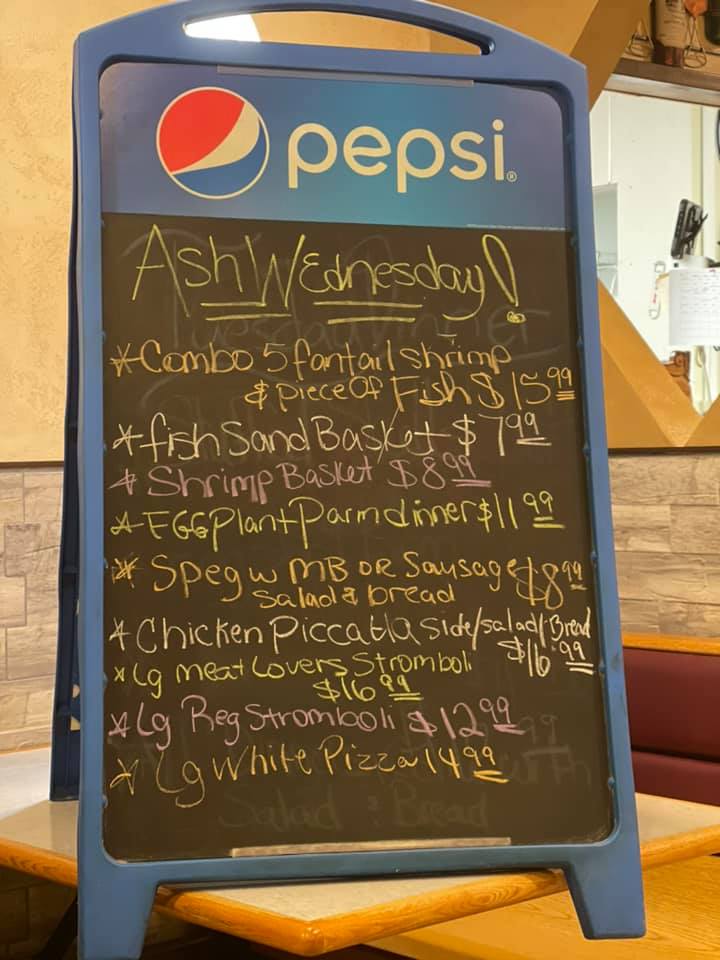 pepsi
Ash Wednesday!
*Combo 5 fantail shrimp
& piece of Fish $15.99
*fish Sand Basket $7.99
*Shrimp Basket $8.99
*EGGPlant Parm dinner $11.99
*Speg w MB OR Sausage $8.99
Salad & bread
*Chicken Piccatta side/salad/Bread
$16.99
*Lg meat Lovers Stromboli
$16.99
*Lg Reg Stromboli $12.99
*Lg White Pizza 14.99
Salad & Bread